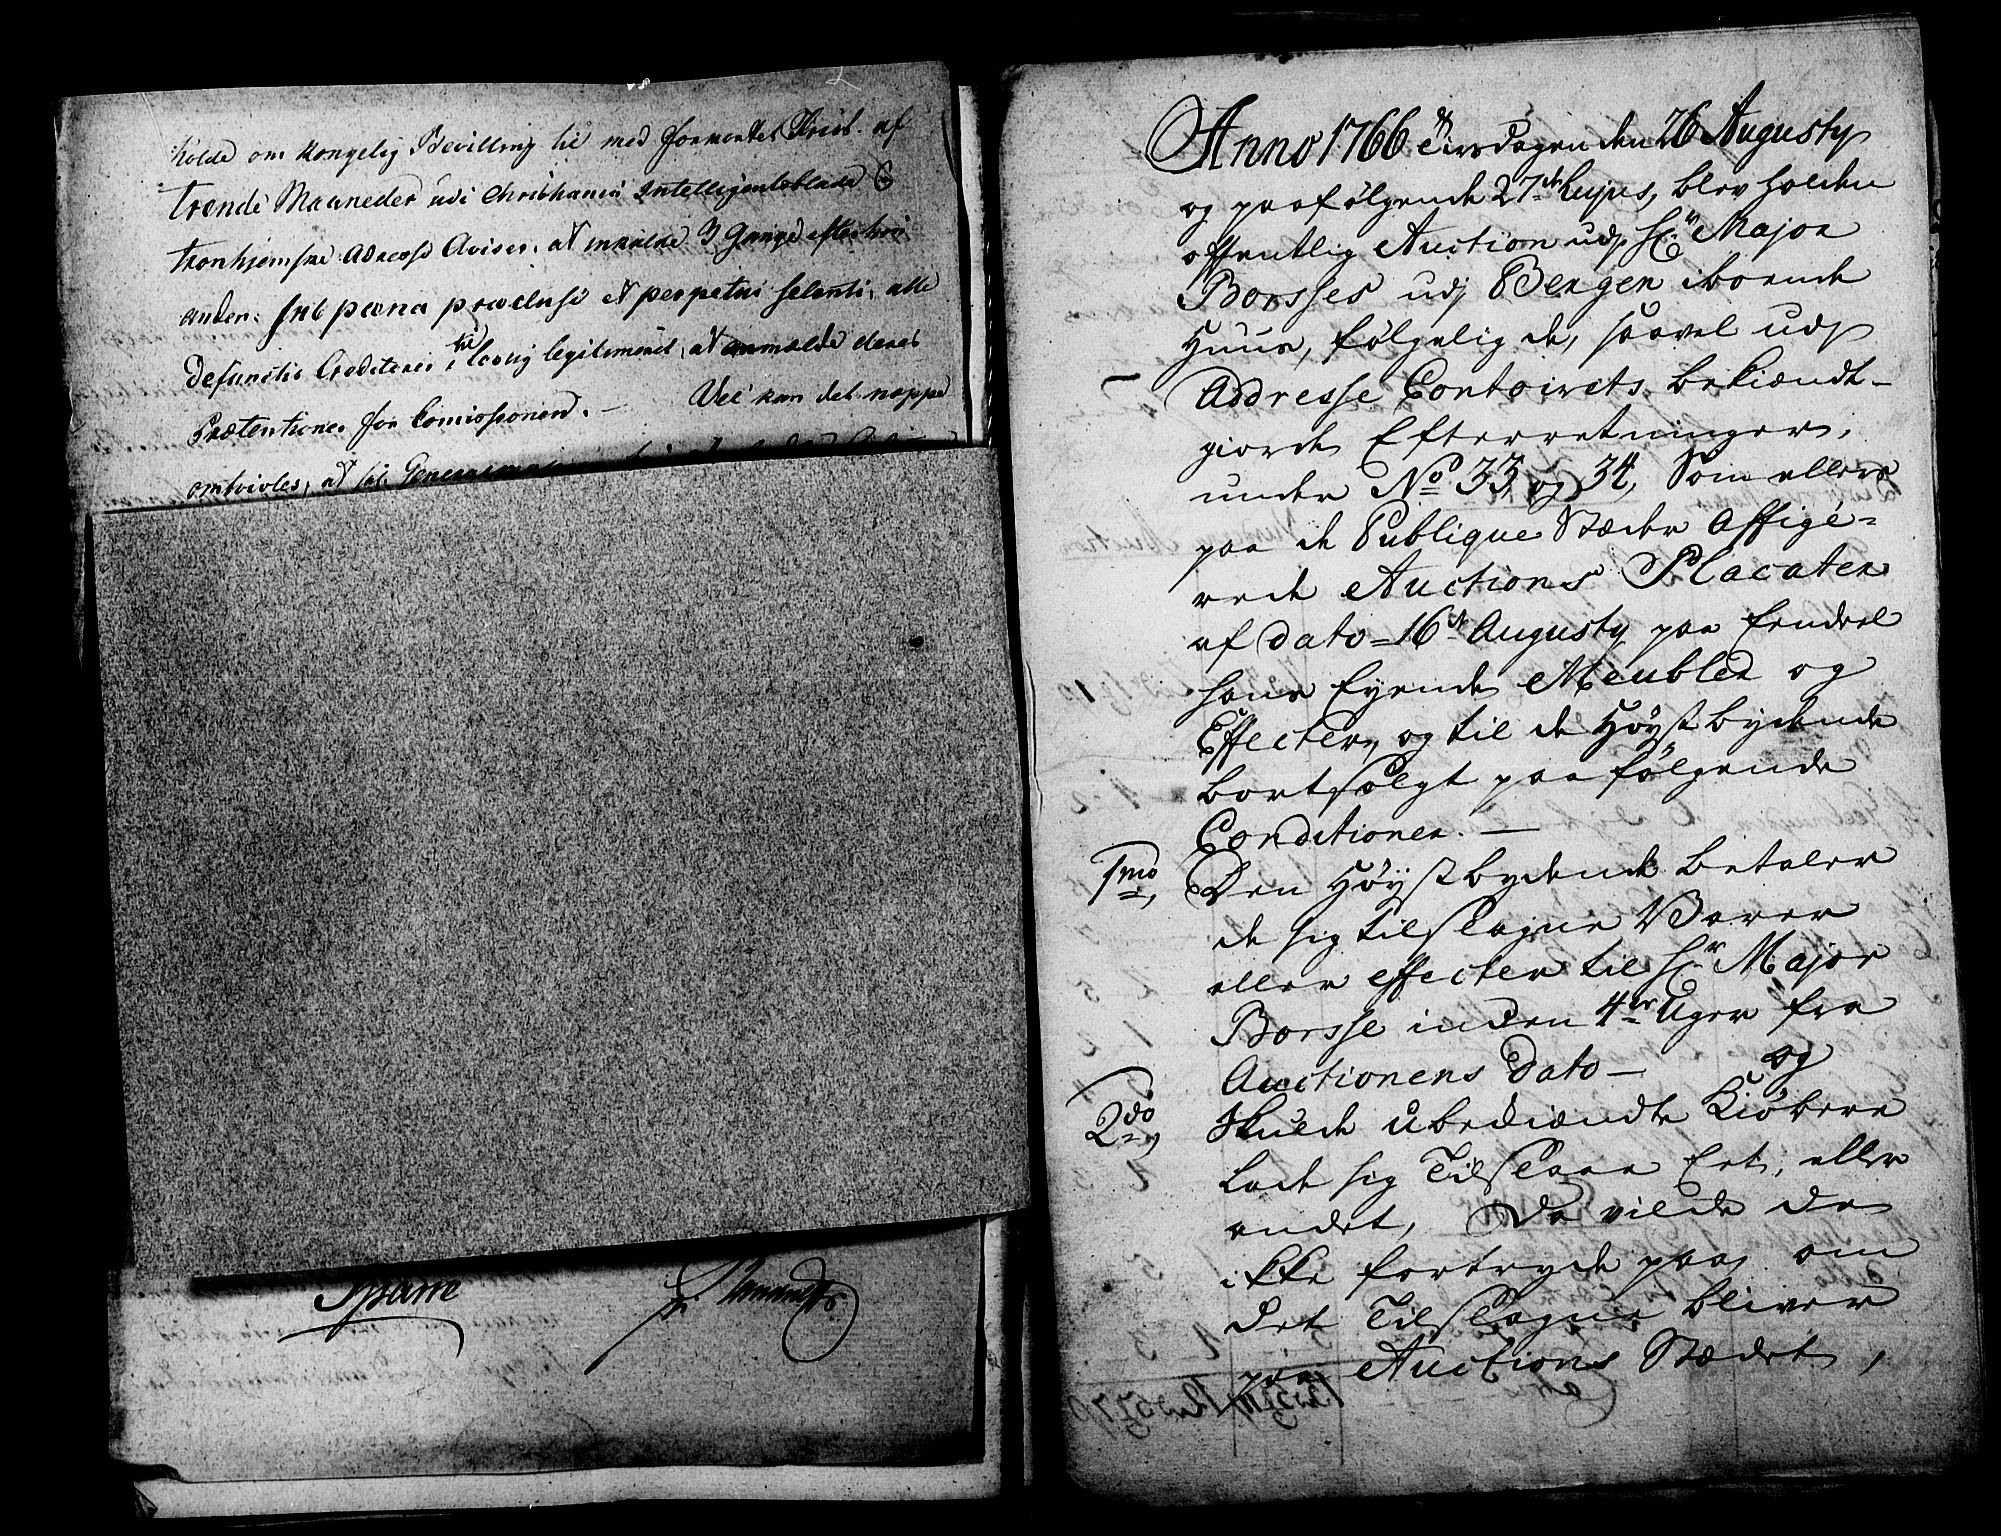 holde om kongelig Bevilling til med formordet Friist. af
trende Maaneder udi Christhania Intelligentsblade &
tronhjemske Adresse Aviser, at indkalde 3 Gange efter hin
anden. sub poena præclusi et perpetui silentii, alle
defunctis Creditores, til lovlig legitimeret, at anmælde deres
Prætentioner for Comissionen. — Vel kan det neppe
omtvivles, at
Sparre
Anno 1766 d: Tirsdagen den 26 Augusty
og paafølgende 27de hujus, blev holden
offentlig Auction udj Hr Major
Borsses udj Bergen iboende
Huus, følgelig de, saavel udj
Addresse Contoirets bekiændt-
giorde Efterretninger,
under No 33 og 34, Som ellers
paa de Publique Stæder Affige=
rede Auctions Placater
af dato 16de Augusty paa Eendeel
hans Eyende Meubler og
Effecter, og til de Høystbydende
bortsolgt paa følgende
Conditioner. —
1mo, Den Høystbydende betaler
de sig tilslagne Varer
eller Effecter til Hr Major
Borsse inden 4re Uger fra
Auctionens Dato — og
2do, Skulde ubediændte Kiøbere
lade sig Tilslaae Eet, eller
andet, Da vilde de
ikke fortryde paa, om
det Tilslagne bliver
paa Auctions Stædet,